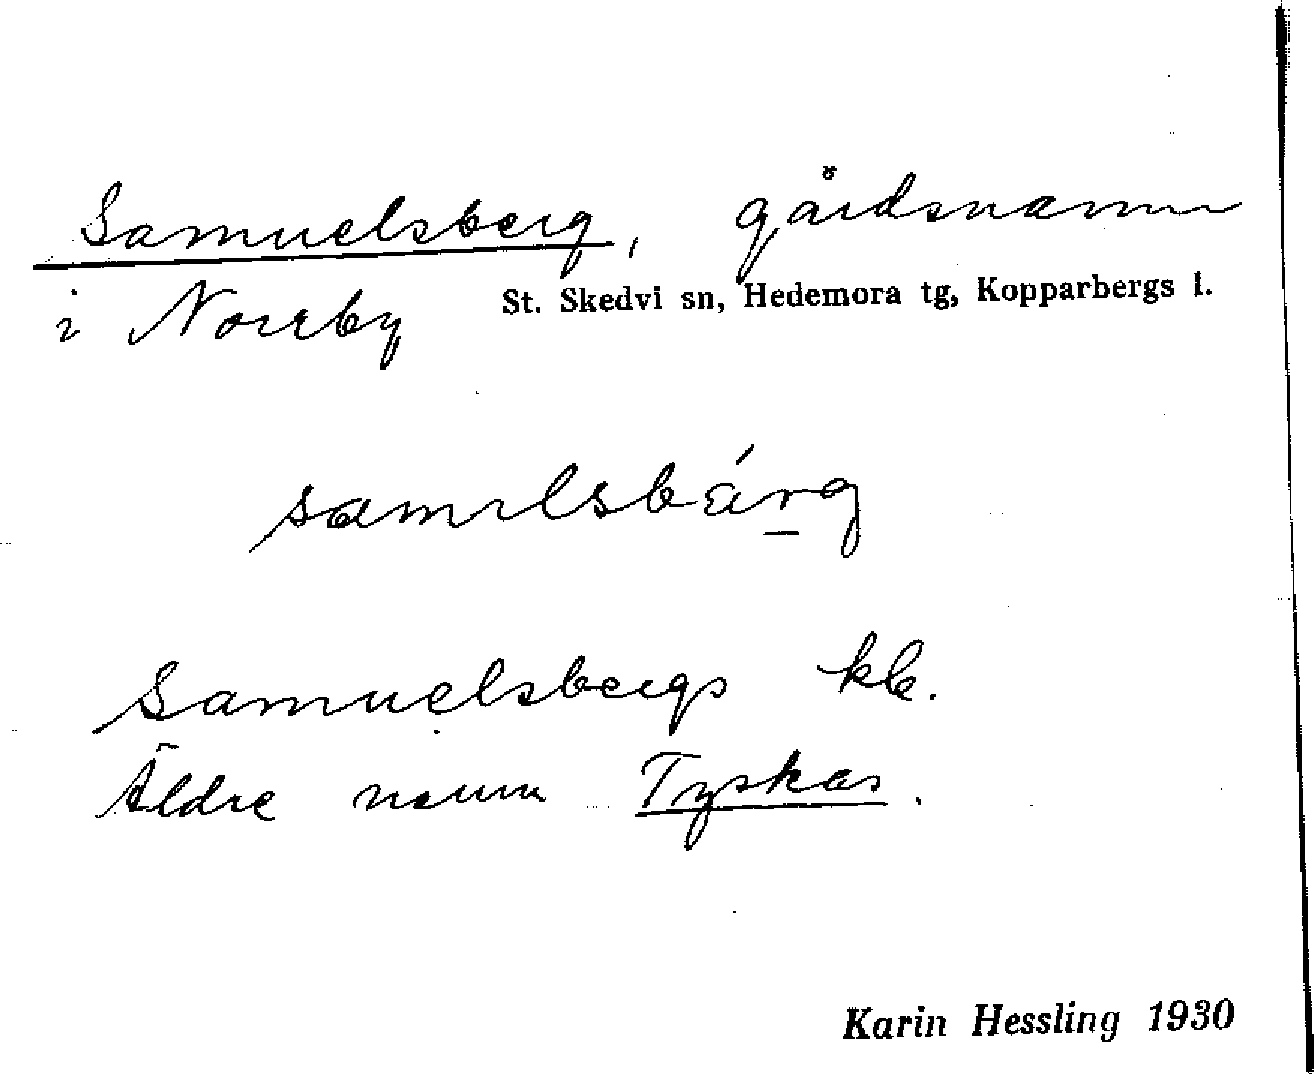 Samuelsberg, gårdsnamn
i Norrby St. Skedvi sn, Hedemora tg, Kopparbergs l.
samılsbá̈rg
Samuelsbergs kb.
Äldre namn Tyskas.
Karin Hessling 1930